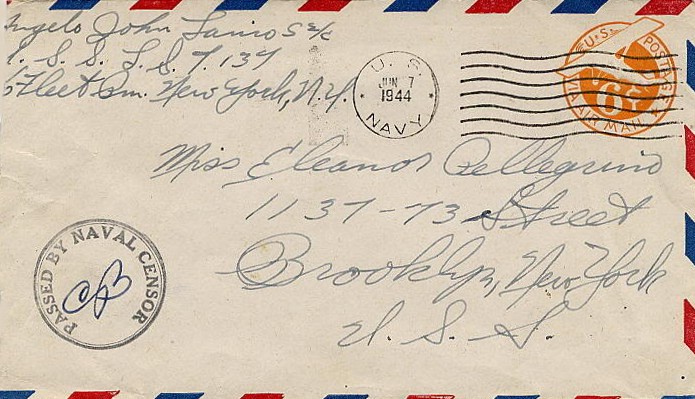 Angelo John Lauro S 2/c
U. S. S. L. S. T. 137
℅ Fleet P.O. New York, N.Y.
U. S.
JUN 7
1944
NAVY
U.S. POSTAGE
6¢
VIA AIR MAIL
Miss Eleanor Pellegrino
1137-73 Street
Brooklyn, New York
U. S. S.
PASSED BY NAVAL CENSOR
CB